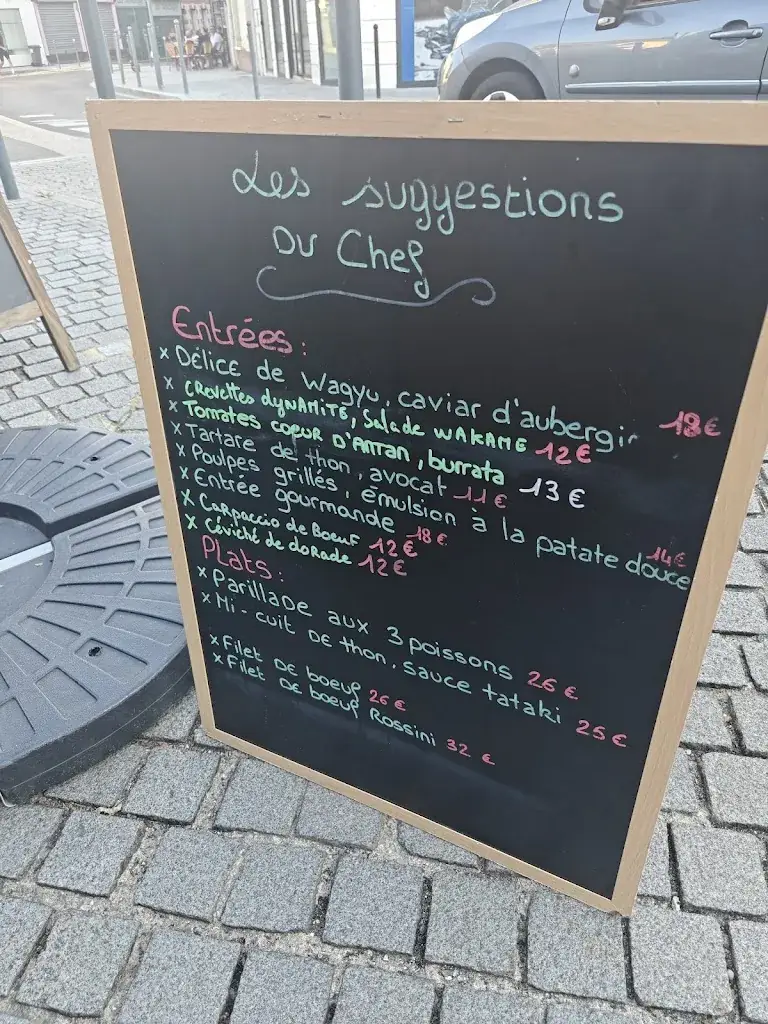 Les suggestions
Du Chef
Entrées :
x Délice de Wagyu, caviar d'aubergin 18€
x Crevettes dynamite, Salade wakame 12€
x Tomates coeur d'Antan, burrata 13€
x Tartare de thon, avocat 11€
x Poulpes grillés, émulsion à la patate douce 14€
x Entrée gourmande 18€
x Carpaccio de Boeuf 12€
x Céviché de dorade 12€
Plats :
x Parillade aux 3 poissons 26€
x Mi-cuit de thon, sauce tataki 25€
x Filet de boeuf 26€
x Filet de boeuf Rossini 32€